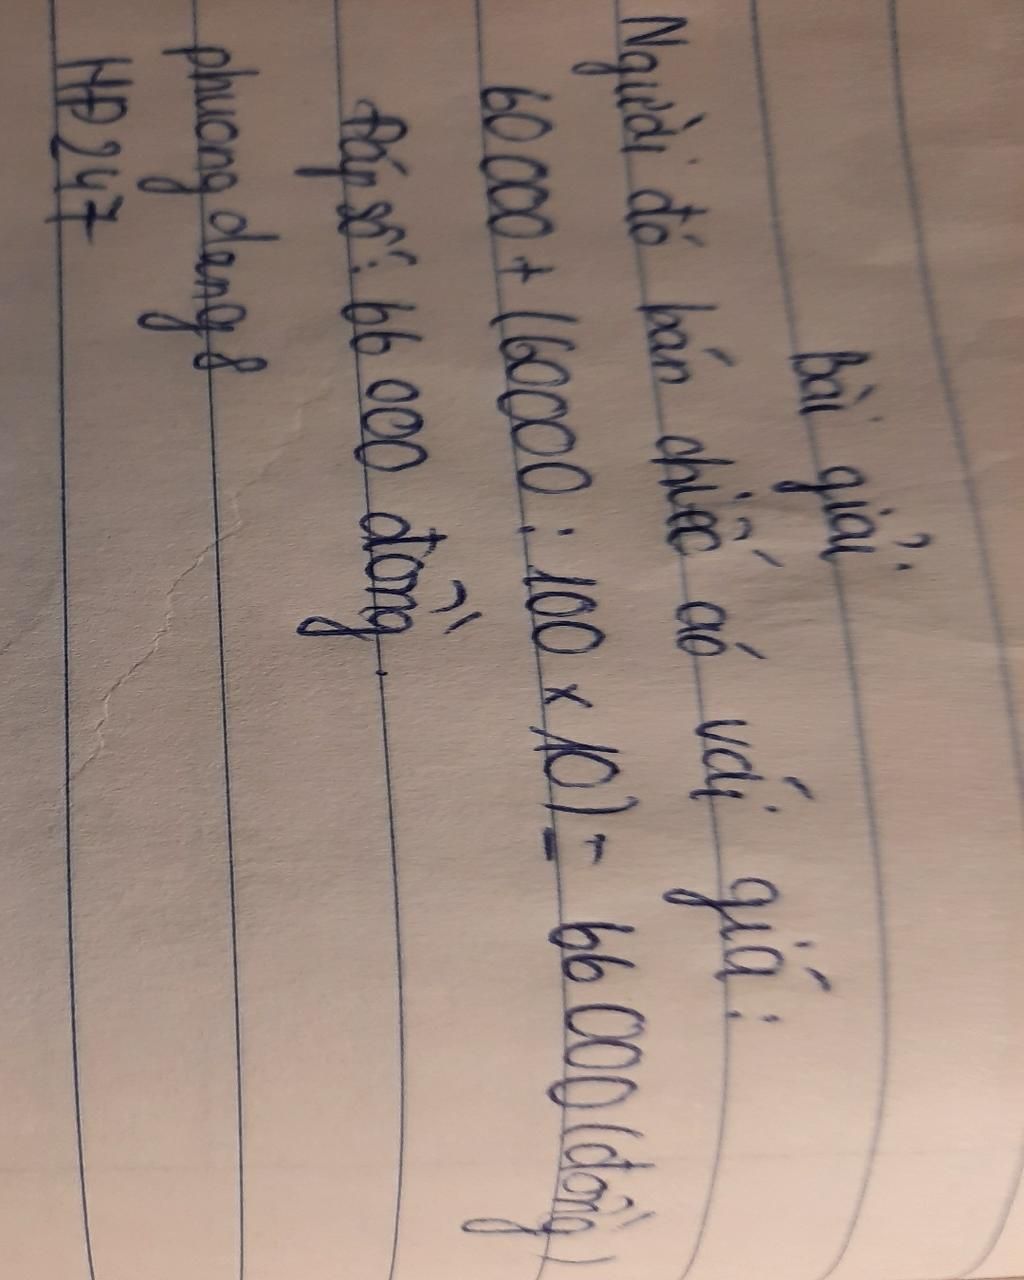 Bài giải
Người đó bán chiếc áo với giá :
60 000 + (60000 : 100 x 10) = 66 000 (đồng)
Đáp số : 66 000 đồng.
phuong dang 8
HĐ 247